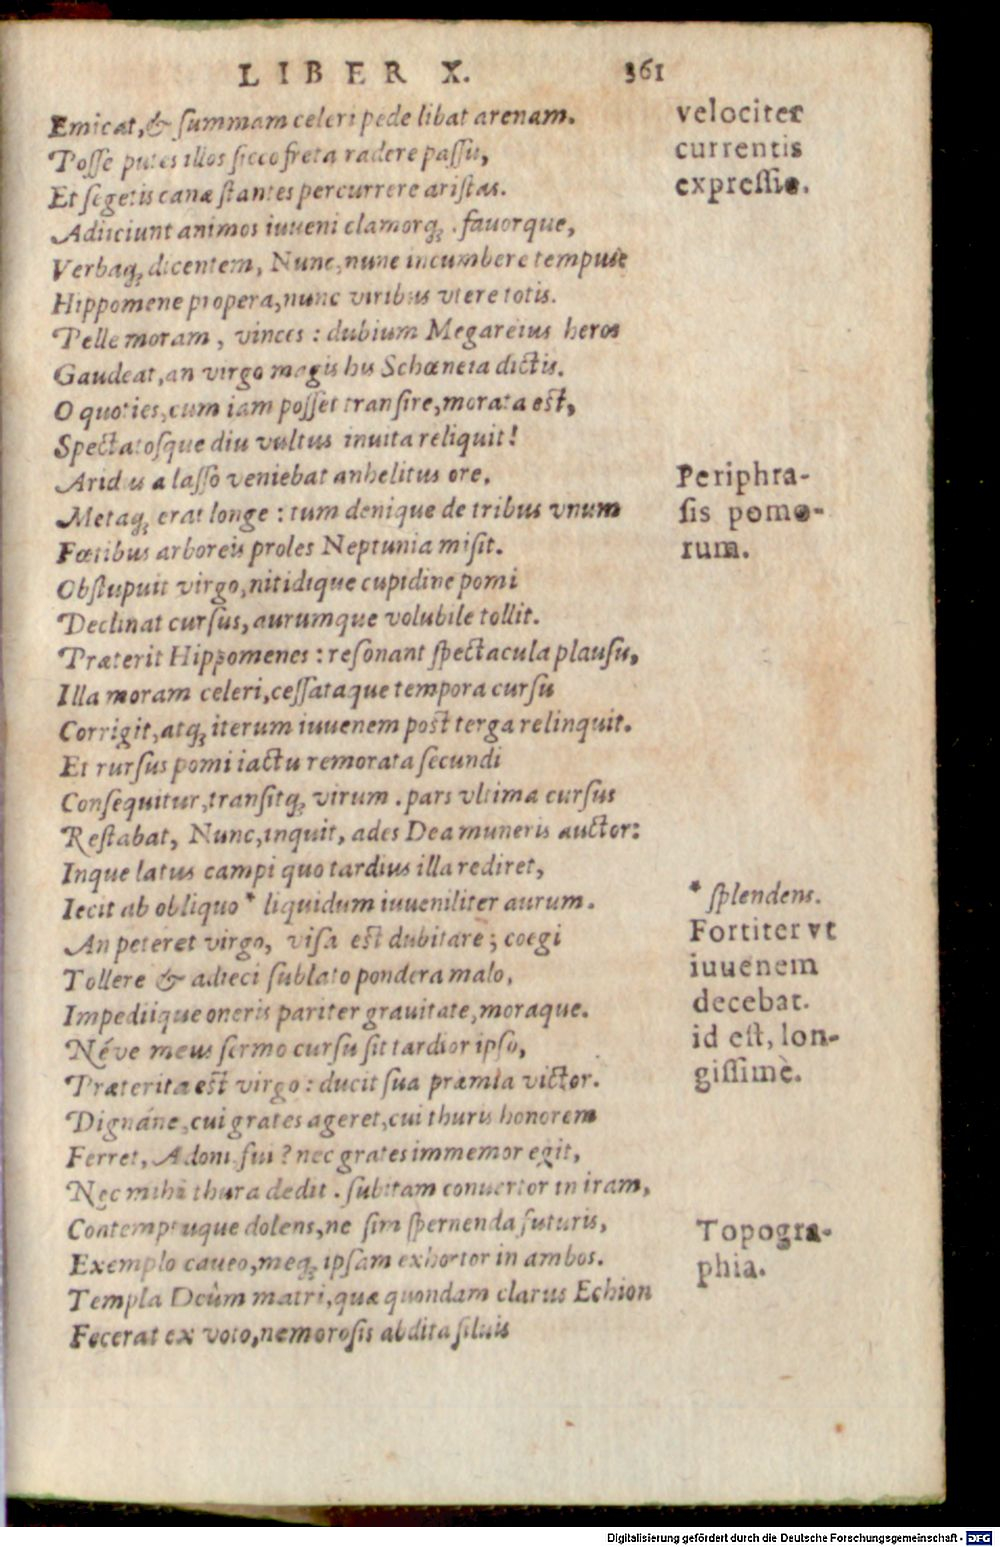 LIBER X. 361
Emicat, & ſummam celeri pede libat arenam.
Poſſe putes illos ſicco freta radere paſſu,
Et ſegetis canæ ſtantes percurrere ariſtas.
Adijciunt animos iuueni clamorq́; fauorque,
Verbaq́; dicentem, Nunc, nunc incumbere tempus
Hippomene propera, nunc viribus vtere totis.
Pelle moram, vinces: dubium Megareius heros
Gaudeat, an virgo magis his Schœneia dictis.
O quoties, cum iam poſſet tranſire, morata eſt,
Spectatoſque diu vultus inuita reliquit!
Aridus a laſſo veniebat anhelitus ore,
Metaq́; erat longe: tum denique de tribus vnum
Fœtibus arboreis proles Neptunia miſit.
Obſtupuit virgo, nitidique cupidine pomi
Declinat curſus, aurumque volubile tollit.
Præterit Hippomenes: reſonant ſpectacula plauſu,
Illa moram celeri, ceſſataque tempora curſu
Corrigit, atq́; iterum iuuenem poſt terga relinquit.
Et rurſus pomi iactu remorata ſecundi
Conſequitur, tranſitq́; virum. pars vltima curſus
Reſtabat, Nunc, inquit, ades Dea muneris auctor:
Inque latus campi quo tardius illa rediret,
Iecit ab obliquo * liquidum iuueniliter aurum.
An peteret virgo, viſa eſt dubitare; coegi
Tollere & adieci ſublato pondera malo,
Impediique oneris pariter grauitate, moraque.
Néve meus ſermo curſu ſit tardior ipſo,
Præterita eſt virgo: ducit ſua præmia victor.
Dignáne, cui grates ageret, cui thuris honorem
Ferret, Adoni fui? nec grates immemor egit,
Nec mihi thura dedit. ſubitam conuertor in iram,
Contemptuque dolens, ne ſim ſpernenda futuris,
Exemplo caueo, meq́; ipſam exhortor in ambos.
Templa Deûm matri, quæ quondam clarus Echion
Fecerat ex voto, nemoroſis abdita ſiluis
velociter
currentis
expreſſio.
Periphra-
ſis pomo-
rum.
* ſplendens.
Fortiter vt
iuuenem
decebat.
id eſt, lon-
giſſimè.
Topogra-
phia.
Digitalisierung gefördert durch die Deutsche Forschungsgemeinschaft - DFG